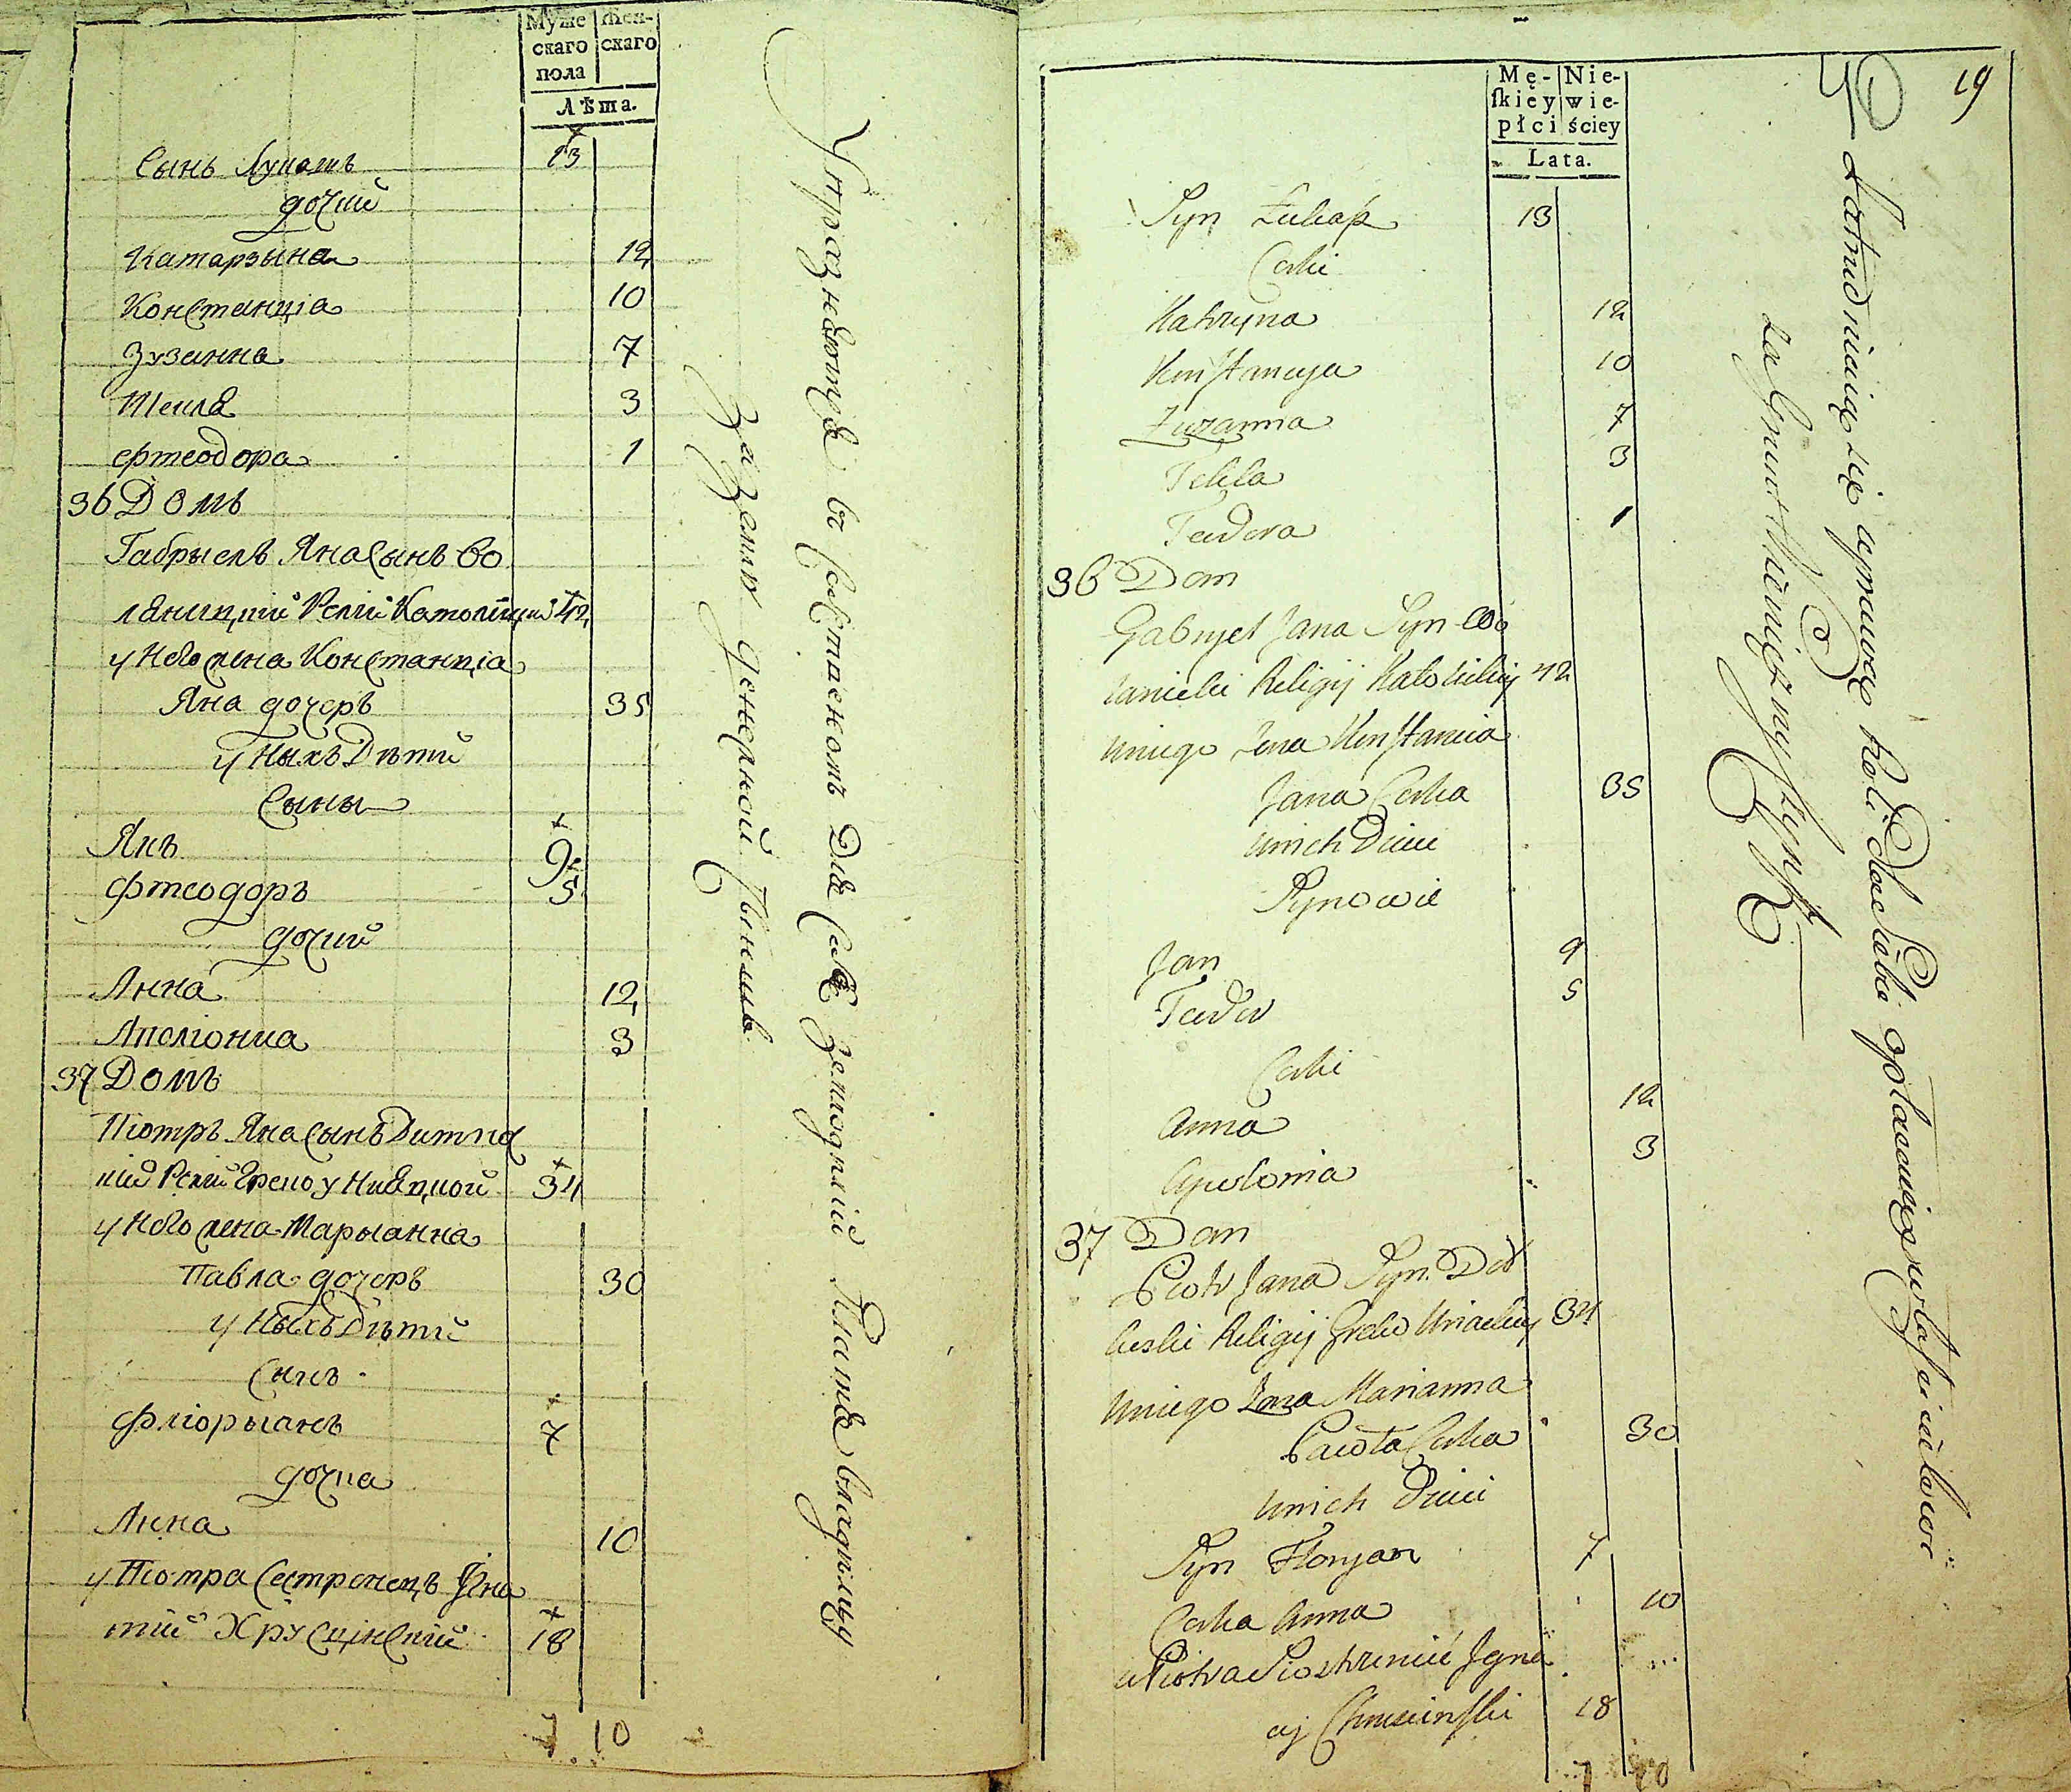 Муже
скаго
пола
Жен-
скаго
Лѣта.
Сынъ Лукашъ 13
дочки
Катаржына 12
Констанціа 10
Зузанна 7
Текля 3
Фтеодора 1
36 Домъ
Габрыель Яна Сынъ Во
ляницкій Релiи Католицкой 42
у Него жена Констанціа
Яна дочерь 35
у Ныхъ Дѣти
Сыны
Янъ 9
Фтеодоръ 5
дочки
Анна 12
Аполіониа 3
37 Домъ
Піотръ Яна Сынъ Дитко
Релiи Греко Униацкой 34
у Него жена Марыанна
Павла дочерь 30
у Ныхъ Дѣти
Сынъ
Фліорыанъ 7
дочка
Анна 10
у Піотра Сестренецъ Игна
тій Хрусцинскій 18
7 10
Упражняются въ
для себя
За Землю
19
Mę-
skiey
płci
Nie-
wie-
ściey
Lata.
Syn Łukasz 13
Corki
Katrzyna 12
Konstancya 10
Zuzanna 7
Tekla 3
Teodora 1
36 Dom
Gabryel Jana Syn Wo
lanicki Religij Katolickiey 42
U niego Żona Konstancia
Jana Corka 35
U nich Dzieci
Synowie
Jan 9
Teodor 5
Corki
Anna 12
Apolonia 3
37 Dom
Piotr Jana Syn Dit
Religij Greko Uniackiey 34
U niego Żona Marianna
Pawła Corka 30
U nich Dzieci
Syn Floryan 7
Corka Anna 10
u Piotra Siostrzeniec Igna
cy Chruscinski 18
7 10
Zatrudniaią się uprawą Roli dla Siebie
Za Grunt